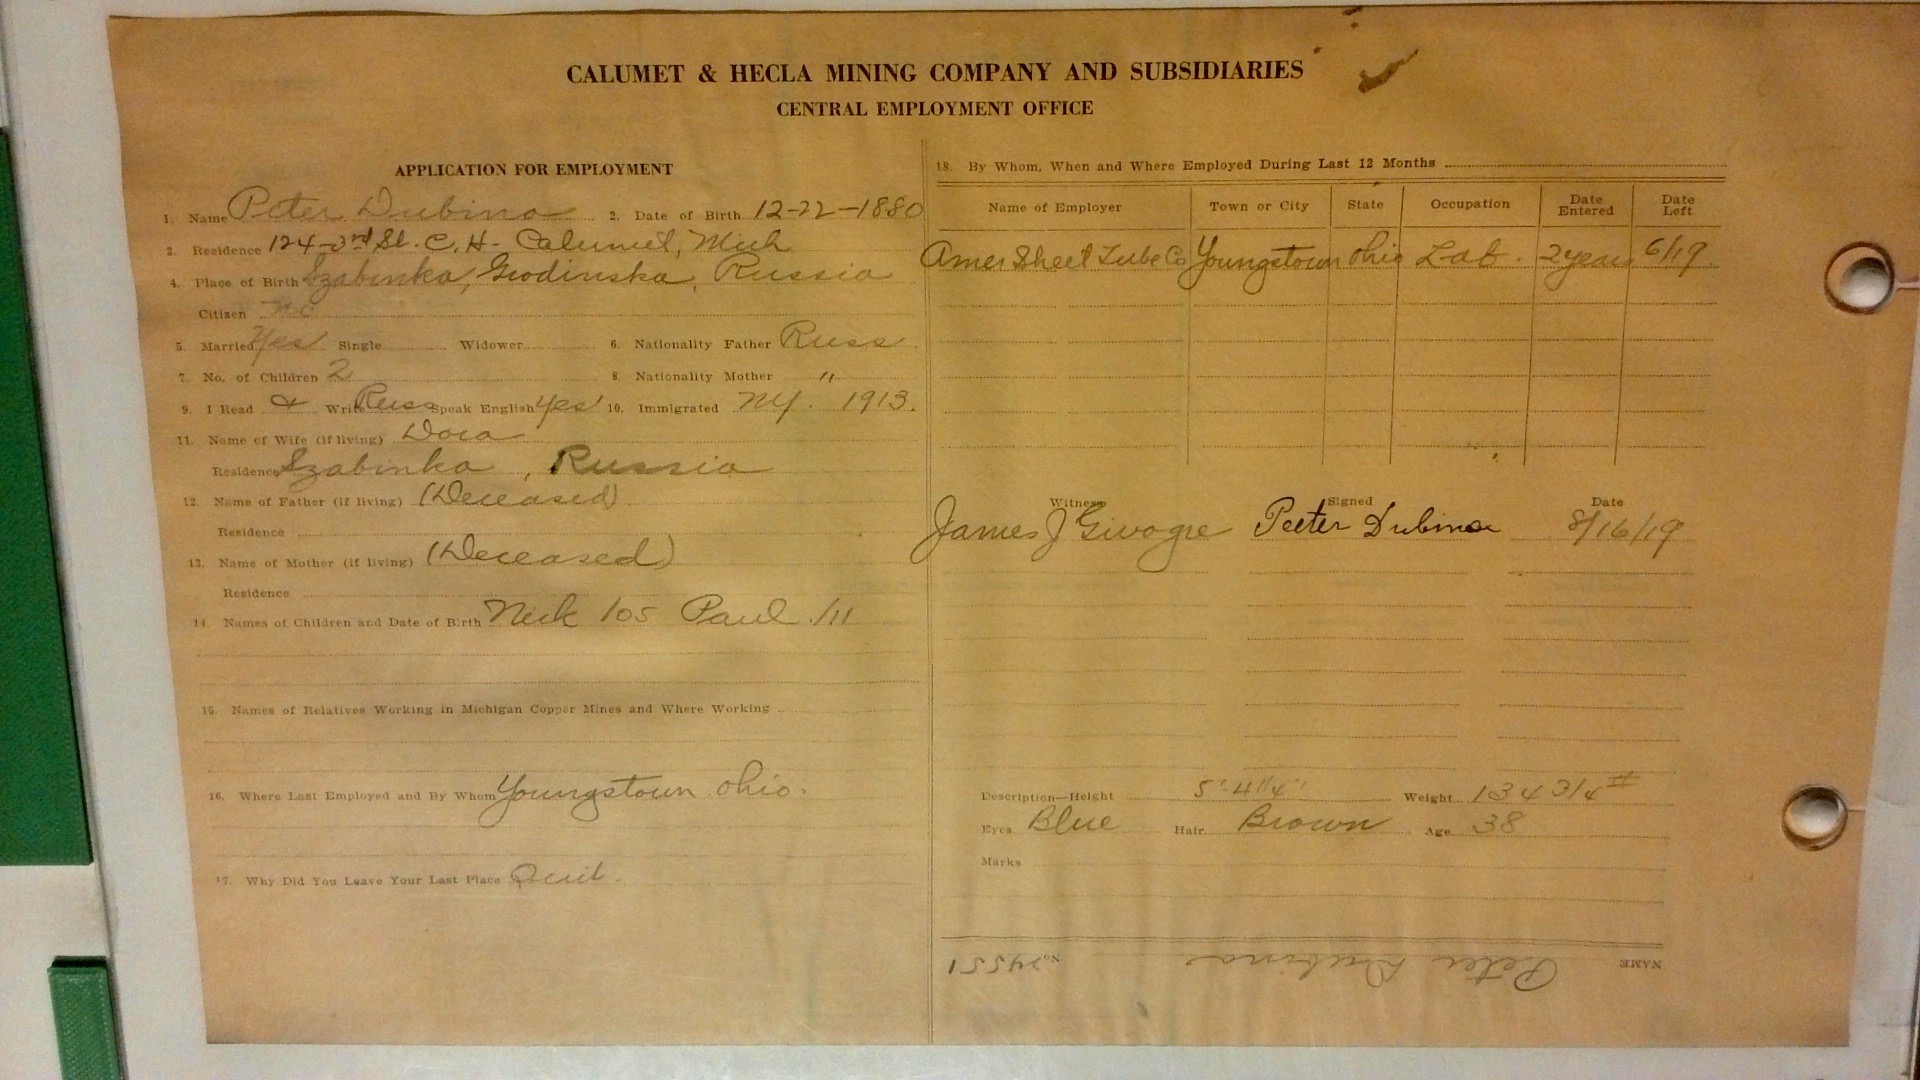 CALUMET & HECLA MINING COMPANY AND SUBSIDIARIES
CENTRAL EMPLOYMENT OFFICE
APPLICATION FOR EMPLOYMENT
1. Name Peter Dubina 2. Date of Birth 12-22-1880
3. Residence 124-3rd St. C. H- Calumet, Mich
4. Place of Birth Szabinka, Grodinska, Russia
Citizen No
5. Married Yes Single Widower 6. Nationality Father Russ.
7. No. of Children 2 8. Nationality Mother "
9. I Read & Write Russ Speak English Yes 10. Immigrated NY. 1913.
11. Name of Wife (if living) Dora
Residence Szabinka, Russia
12. Name of Father (if living) (Deceased)
Residence
13. Name of Mother (if living) (Deceased)
Residence
14. Names of Children and Date of Birth Nick /05 Paul /11
15. Names of Relatives Working in Michigan Copper Mines and Where Working
16. Where Last Employed and By Whom Youngstown Ohio.
17. Why Did You Leave Your Last Place Quit.
18. By Whom, When and Where Employed During Last 12 Months
Name of Employer Town or City State Occupation Date Entered Date Left
Amer Sheet Tube Co Youngstown Ohio Lab. 2 years 6/19.
Witness Signed Date
James J Givogre Peeter Dubina 8/16/19
Description—Height 5'-4 1/4" Weight 134 3/4 #
Eyes Blue Hair Brown Age 38
Marks
NAME Peter Dubina No. 24551